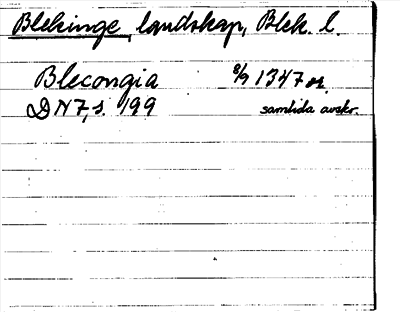 Blekinge, landskap, Blek. l.
Blecongia 8/9 1347 or.
DN 7, s. 199 samtida avskr.